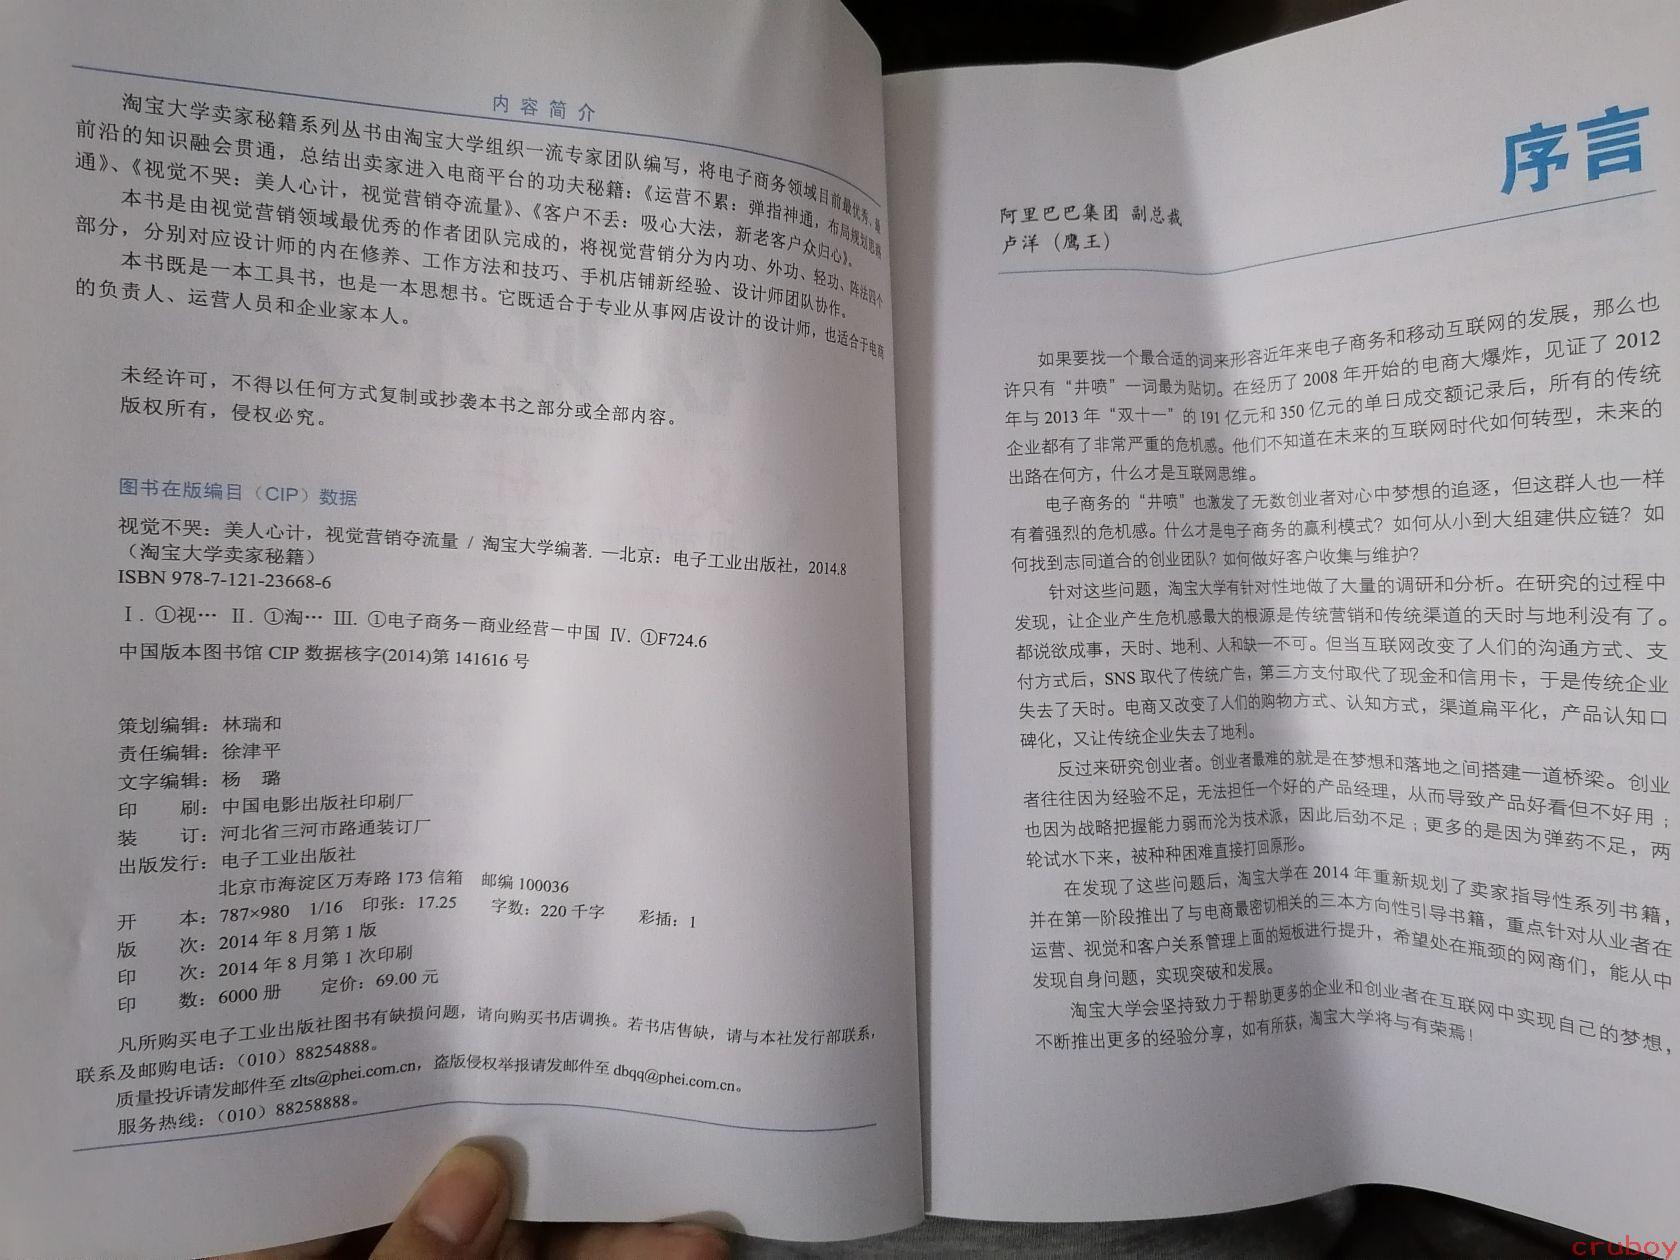 内容简介
淘宝大学卖家秘籍系列丛书由淘宝大学组织一流专家团队编写，将电子商务领域目前最优秀、最
前沿的知识融会贯通，总结出卖家进入电商平台的功夫秘籍：《运营不累：弹指神通，布局规划思路
通》、《视觉不哭：美人心计，视觉营销夺流量》、《客户不丢：吸心大法，新老客户众归心》。
本书是由视觉营销领域最优秀的作者团队完成的，将视觉营销分为内功、外功、轻功、阵法四个
部分，分别对应设计师的内在修养、工作方法和技巧、手机店铺新经验、设计师团队协作。
本书既是一本工具书，也是一本思想书。它既适合于专业从事网店设计的设计师，也适合于电商
的负责人、运营人员和企业家本人。
未经许可，不得以任何方式复制或抄袭本书之部分或全部内容。
版权所有，侵权必究。
图书在版编目（CIP）数据
视觉不哭：美人心计，视觉营销夺流量 / 淘宝大学编著. —北京：电子工业出版社，2014.8
（淘宝大学卖家秘籍）
ISBN 978-7-121-23668-6
Ⅰ. ①视… Ⅱ. ①淘… Ⅲ. ①电子商务－商业经营－中国 Ⅳ. ①F724.6
中国版本图书馆 CIP 数据核字(2014)第 141616 号
策划编辑：林瑞和
责任编辑：徐津平
文字编辑：杨 璐
印 刷：中国电影出版社印刷厂
装 订：河北省三河市路通装订厂
出版发行：电子工业出版社
北京市海淀区万寿路 173 信箱 邮编 100036
开 本：787×980 1/16 印张：17.25 字数：220 千字 彩插：1
版 次：2014 年 8 月第 1 版
印 次：2014 年 8 月第 1 次印刷
印 数：6000 册 定价：69.00 元
凡所购买电子工业出版社图书有缺损问题，请向购买书店调换。若书店售缺，请与本社发行部联系，
联系及邮购电话：（010）88254888。
质量投诉请发邮件至 zlts@phei.com.cn，盗版侵权举报请发邮件至 dbqq@phei.com.cn。
服务热线：（010）88258888。
序言
阿里巴巴集团 副总裁
卢洋（鹰王）
如果要找一个最合适的词来形容近年来电子商务和移动互联网的发展，那么也
许只有“井喷”一词最为贴切。在经历了 2008 年开始的电商大爆炸，见证了 2012
年与 2013 年“双十一”的 191 亿元和 350 亿元的单日成交额记录后，所有的传统
企业都有了非常严重的危机感。他们不知道在未来的互联网时代如何转型，未来的
出路在何方，什么才是互联网思维。
电子商务的“井喷”也激发了无数创业者对心中梦想的追逐，但这群人也一样
有着强烈的危机感。什么才是电子商务的赢利模式？如何从小到大组建供应链？如
何找到志同道合的创业团队？如何做好客户收集与维护？
针对这些问题，淘宝大学有针对性地做了大量的调研和分析。在研究的过程中
发现，让企业产生危机感最大的根源是传统营销和传统渠道的天时与地利没有了。
都说欲成事，天时、地利、人和缺一不可。但当互联网改变了人们的沟通方式、支
付方式后，SNS 取代了传统广告，第三方支付取代了现金和信用卡，于是传统企业
失去了天时。电商又改变了人们的购物方式、认知方式，渠道扁平化，产品认知口
碑化，又让传统企业失去了地利。
反过来研究创业者。创业者最难的就是在梦想和落地之间搭建一道桥梁。创业
者往往因为经验不足，无法担任一个好的产品经理，从而导致产品好看但不好用；
也因为战略把握能力弱而沦为技术派，因此后劲不足；更多的是因为弹药不足，两
轮试水下来，被种种困难直接打回原形。
在发现了这些问题后，淘宝大学在 2014 年重新规划了卖家指导性系列书籍，
并在第一阶段推出了与电商最密切相关的三本方向性引导书籍，重点针对从业者在
运营、视觉和客户关系管理上面的短板进行提升，希望处在瓶颈的网商们，能从中
发现自身问题，实现突破和发展。
淘宝大学会坚持致力于帮助更多的企业和创业者在互联网中实现自己的梦想，
不断推出更多的经验分享，如有所获，淘宝大学将与有荣焉！
cruboy